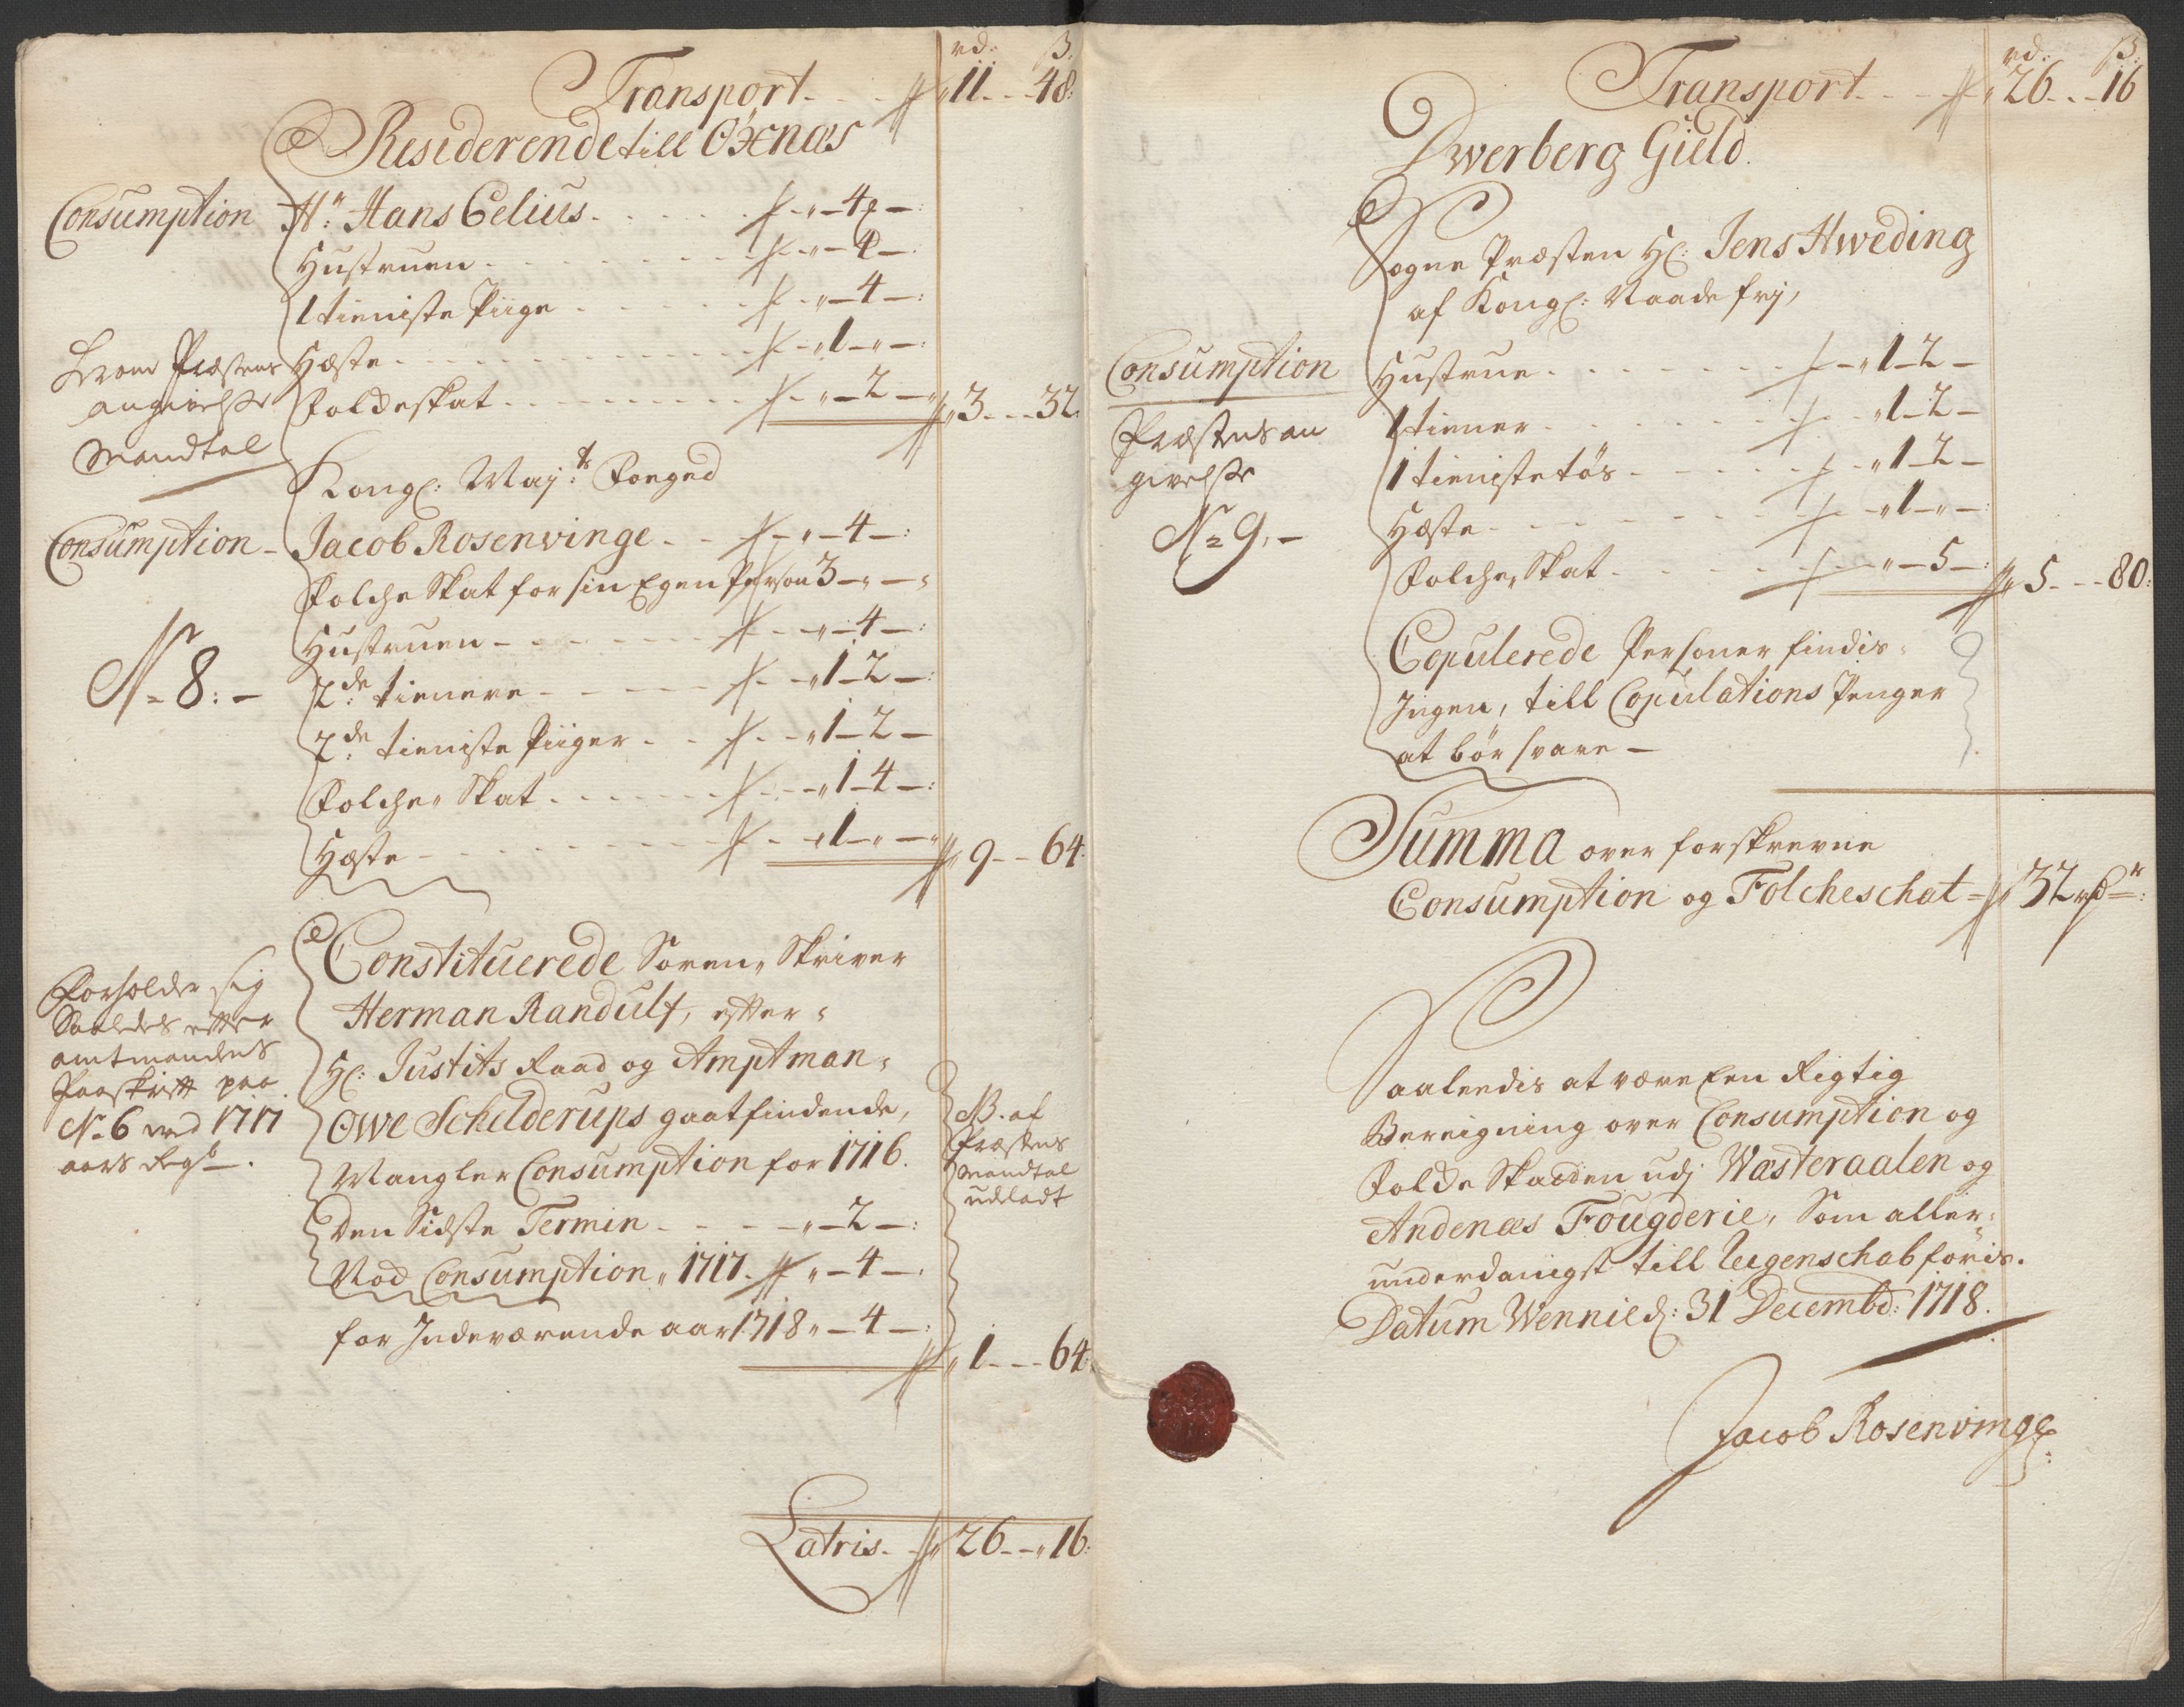 rd: ß.
Transport - - - 11 - - 48:
Residerende till Öxnæs
Consumption
Hr: Hans Celius - - - „ - 4 - :
Hustruen - - - „ - 4 - :
1 tieniste Piige - - - „ - 4 - :
Hæste - - - „ 1 - „ - :
Foldeskat - - - „ - 2 - „ 3 - - 32
Præstens
angivelsse
Mandtal
Kongl: Maj:ts Foeged
Consumption -
Jacob Rosenvinge - - „ - 4 - :
Folche Skat for sin Egen Person 3 - „ - „
Hustruen - - - „ - 4 - :
2de: tienere - - - „ 1 - 2 - :
2de: tieniste Piiger - - „ 1 - 2 -
Folche Skat - - - „ 1 - 4 - :
Hæste - - - „ 1 - „ - „ 9 - - 64
No 8: -
Constituerede Soren Skriver
Herman Randulf, efter
Hl: Justits Raad og Amptman
Owe Schelderups gaatfindende,
Mangler Consumption for 1716.
Den Sidste Termin - - - „ - 2 - :
Nod Consumption „ 1717. „ - 4 - .
for Indeværende aar 1718 „ - 4 - :
„ 1 - - 64
Forholder sig
Saaledes efter
amtmandens
Paaskrift paa
No 6 ved 1717
aars Regsb.
NB. af
Præstens
Mandtal
udeladt
Latris - - 26 - - „ 16:
rd: ß:
Transport - - - „ 26 - - 16
Dwerberg Gield.
Sogne Præsten Hl: Jens Hweding
af Kongl: Naade frj,
Consumption
Hustrue - - - „ 1 - 2 -
1 tiener - - - „ 1 - 2 -
1 tienistetös - - - „ 1 - 2 -
Hæste - - - „ 1 - „ - :
Folche Skat - - - „ - 5 - : 5 - - 80:
Præstens an
givelsse
No 9. -
Copulerede Personer findis
Ingen, till Copulations Penger
at bör svare -
Summa over forskrevne
Consumption og Folcheschat = 32 rdr:
Saaleedis at være Een Rigtig
Bereigning over Consumption og
Folde Skatten udj Wæsteraalen og
Andenæs Fougderie, Som aller=
underdanigst till Regenschab föris.
Datum Wennied: 31 Decembd: 1718.
Jacob Rosenvinge